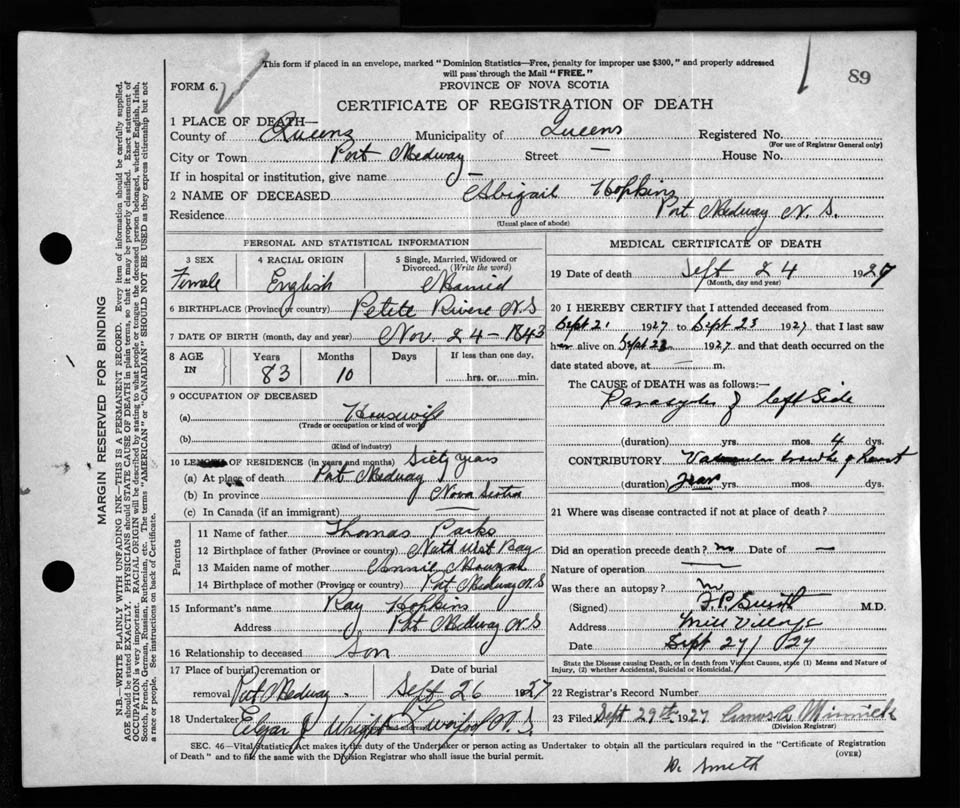 This form if placed in an envelope, marked "Dominion Statistics—Free, penalty for improper use $300," and properly addressed
will pass through the Mail "FREE."
89
FORM 6.
PROVINCE OF NOVA SCOTIA
CERTIFICATE OF REGISTRATION OF DEATH
1 PLACE OF DEATH—
County of Queens Municipality of Queens Registered No.
(For use of Registrar General only)
City or Town Port Medway Street — House No.
If in hospital or institution, give name —
2 NAME OF DECEASED Abigail Hopkins
Residence Port Medway N. S.
(Usual place of abode)
PERSONAL AND STATISTICAL INFORMATION
3 SEX 4 RACIAL ORIGIN 5 Single, Married, Widowed or Divorced. (Write the word)
Female English Married
6 BIRTHPLACE (Province or country) Petite Riviere N.S
7 DATE OF BIRTH (month, day and year) Nov. 24 – 1843
8 AGE IN Years Months Days If less than one day.
83 10 hrs. or min.
9 OCCUPATION OF DECEASED
(a) Housewife
(Trade or occupation or kind of work)
(b)
(Kind of industry)
10 LENGTH OF RESIDENCE (in years and months) Sixty years
(a) At place of death Port Medway
(b) In province Nova Scotia
(c) In Canada (if an immigrant)
Parents
11 Name of father Thomas Parks
12 Birthplace of father (Province or country) North West Bay
13 Maiden name of mother Annie
14 Birthplace of mother (Province or country) Port Medway N.S
15 Informant's name Ray Hopkins
Address Port Medway N S
16 Relationship to deceased Son
17 Place of burial, cremation or removal Port Medway. Date of burial Sept 26 1927
18 Undertaker Elgar J Wright N. S.
and address
MEDICAL CERTIFICATE OF DEATH
19 Date of death Sept 24 1927
(Month, day and year)
20 I HEREBY CERTIFY that I attended deceased from
Sept 21 1927 to Sept 23 1927 that I last saw
her alive on Sept 23 1927 and that death occurred on the
date stated above, at — m.
The CAUSE OF DEATH was as follows:—
Paralysis of left Side
(duration) yrs. mos. 4 dys.
CONTRIBUTORY Valvular trouble of heart
(duration) years mos. dys.
21 Where was disease contracted if not at place of death?
Did an operation precede death? no Date of —
Nature of operation
Was there an autopsy? no
(Signed) F.P. Smith M.D.
Address Mill Village
Date Sept 27/27
State the Disease causing Death, or in death from Violent Causes, state (1) Means and Nature of
Injury, (2) whether Accidental, Suicidal or Homicidal.
22 Registrar's Record Number
23 Filed Sept 29th 1927 Minnick
(Division Registrar)
SEC. 46—Vital Statistics Act makes it the duty of the Undertaker or person acting as Undertaker to obtain all the particulars required in the "Certificate of Registration
of Death" and to file the same with the Division Registrar who shall issue the burial permit. (OVER)
Dr. Smith
MARGIN RESERVED FOR BINDING
N.B.—WRITE PLAINLY WITH UNFADING INK—THIS IS A PERMANENT RECORD. Every item of information should be carefully supplied.
AGE should be stated EXACTLY. PHYSICIANS should STATE CAUSE OF DEATH in plain terms, so that it may be properly classified. Exact statement of
OCCUPATION is very important. RACIAL ORIGIN will be described by stating to what people or tongue the deceased person belonged, whether English, Irish,
Scotch, French, German, Russian, Ruthenian, etc. The terms "AMERICAN" or "CANADIAN" SHOULD NOT BE USED as they express citizenship but not
a race or people. See instructions on back of Certificate.